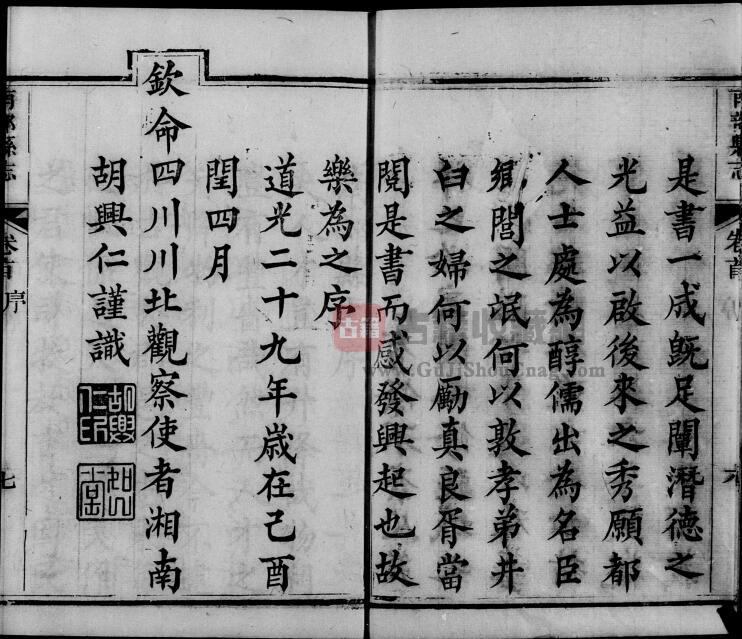 是書一成既足闡潛德之
光益以啟後來之秀願都
人士處為醇儒出為名臣
鄉閭之氓何以敦孝弟井
臼之婦何以勵真良胥當
閱是書而感發興起也故
樂為之序
道光二十九年歲在己酉
閏四月
欽命四川川北觀察使者湘南
胡興仁謹識
胡興仁印
南部縣志
卷首
序
七
南部縣志
卷首
六
古籍
古籍收藏
www.GuJiShouCang.com